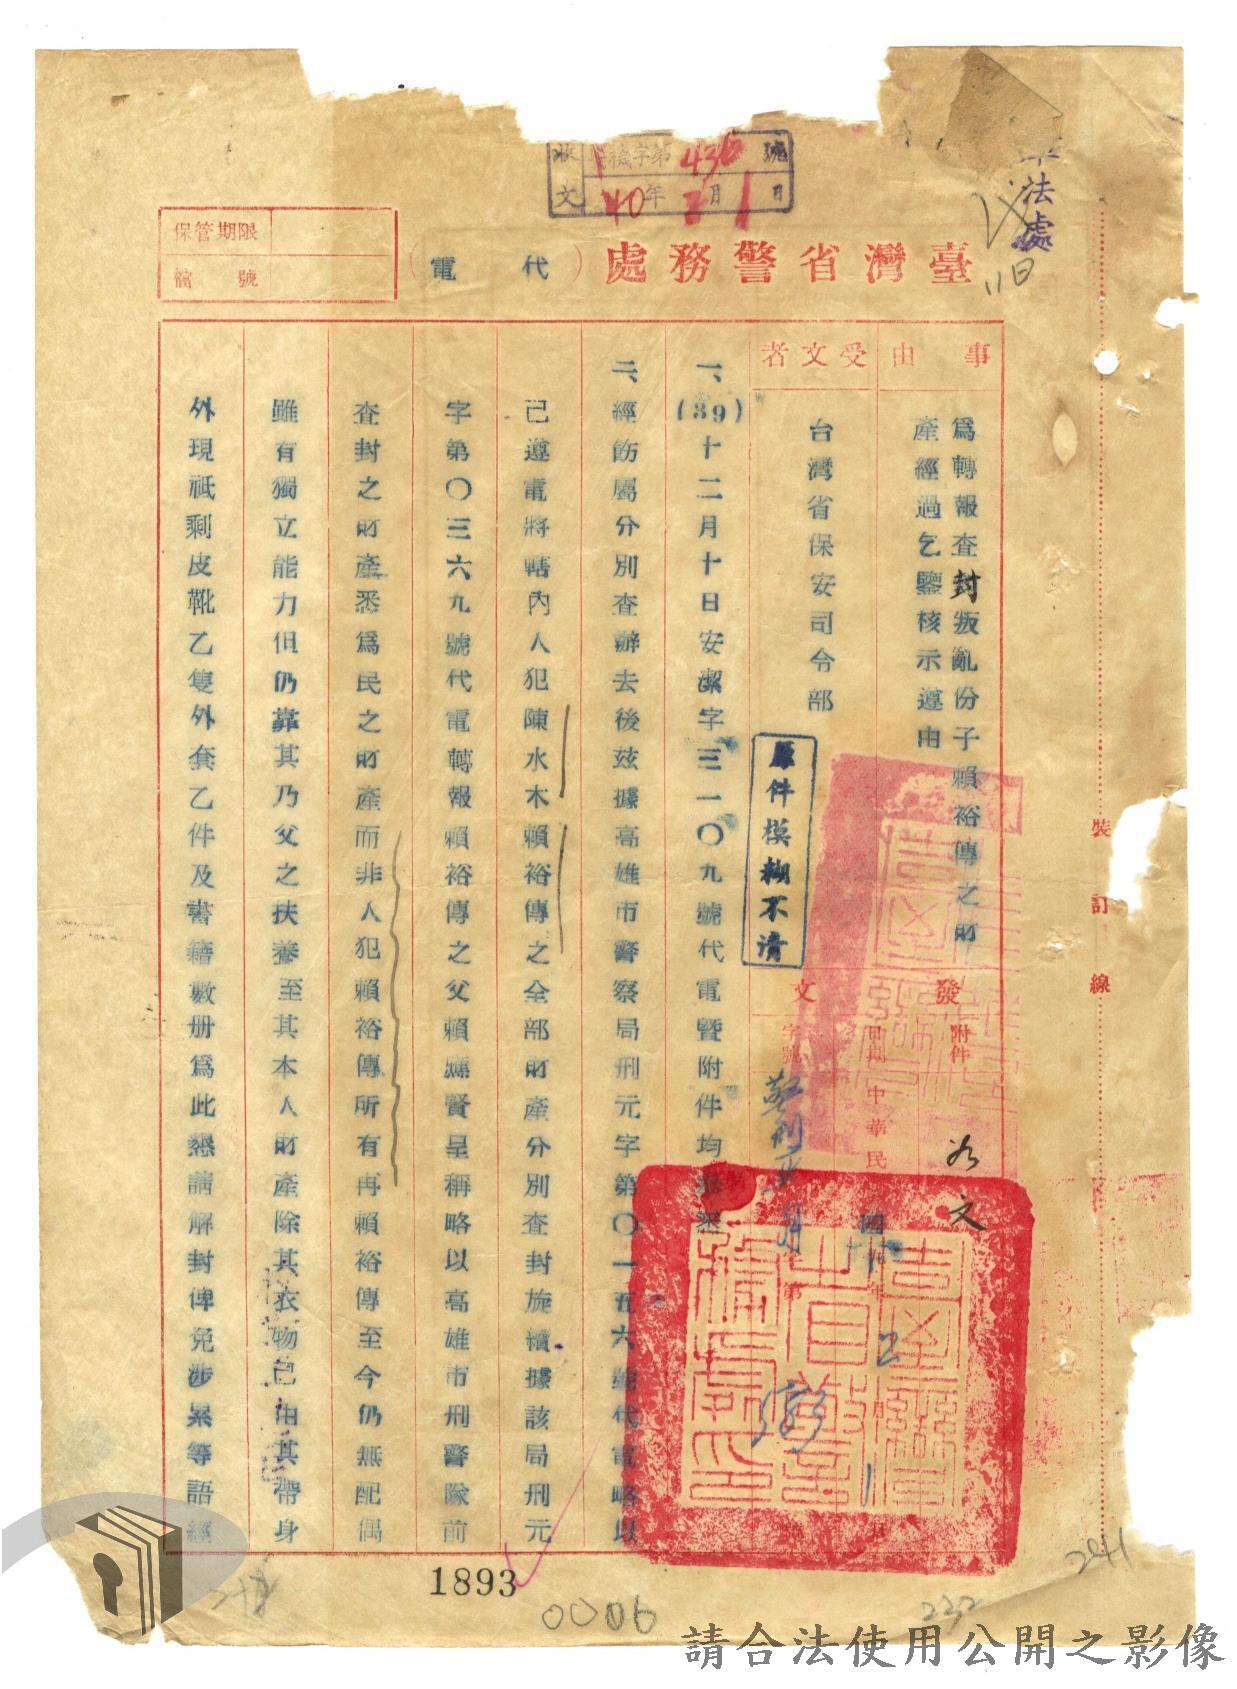 軍法處
11日
收文
機字第436號
40年2月1日
保管期限
檔號
臺灣省警務處(代電)
事由
為轉報查封叛亂份子賴裕傳之財
產經過乞鑒核示遵由
受文者
台灣省保安司令部
原件模糊不清
發文
附件
如文
日期
中華民國
年
2
月
1
日
字號
第
號
一、(39)十二月十日安潔字三一〇九號代電暨附件均奉悉
二、經飭屬分別查辦去後茲據高雄市警察局刑元字第〇一五六號代電略以
已遵電將轄內人犯陳水木賴裕傳之全部財產分別查封旋續據該局刑元
字第〇三六九號代電轉報賴裕傳之父賴應賢呈稱略以高雄市刑警隊前
查封之財產悉為民之財產而非人犯賴裕傳所有再賴裕傳至今仍無配偶
雖有獨立能力但仍靠其乃父之扶養至其本人財產除其衣物已由其帶身
外現祇剩皮靴乙隻外套乙件及書籍數册為此懇請解封俾免涉累等語經
裝訂線
1893
0006
232
2411
請合法使用公開之影像